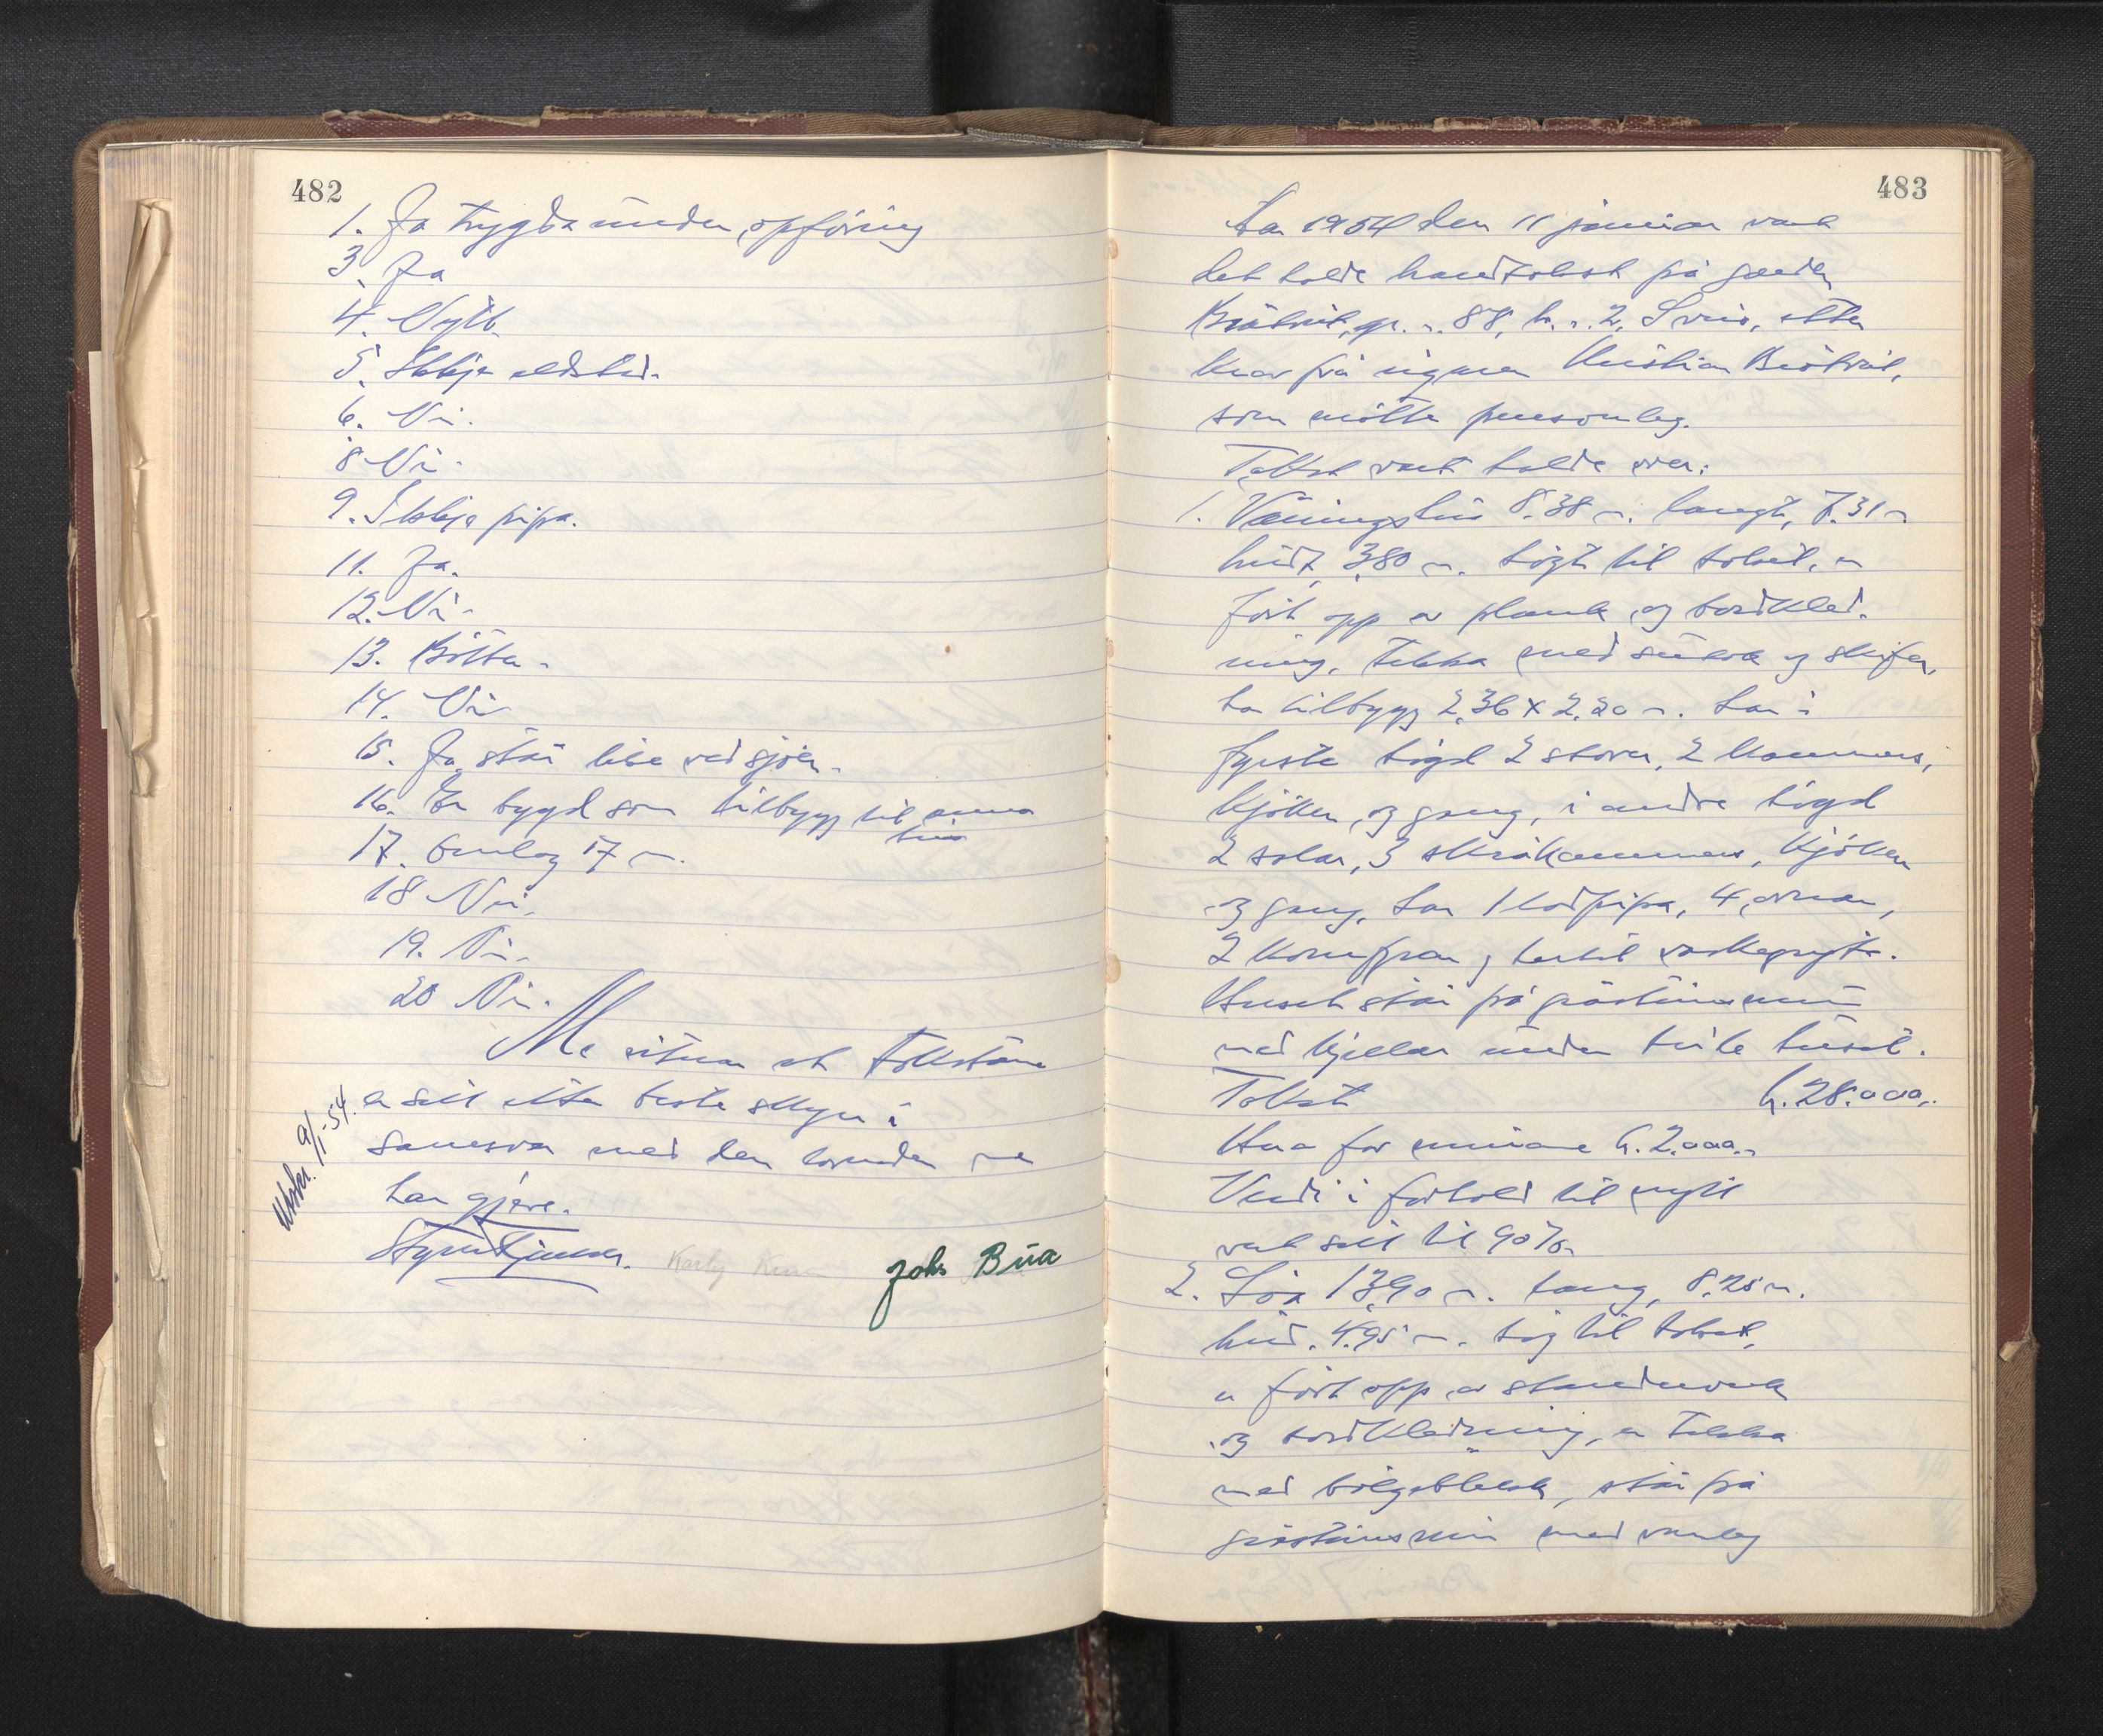 482
1. Ja trygda under oppføring
3. Ja
4. Nytt.
5. Ikkje eldsted.
6. Nei.
8 Nei.
9. Ikkje pipa.
11. Ja.
12. Nei.
13. Bøtter.
14. Nei
15. Ja, står like ved sjøen.
16. Er bygd som tilbygg til anna
hus
17. Omlag 17 m.
18 Nei.
19. Nei.
20 Nei.
Me vitnar at takstane
er sett etter beste skjøn i
samsvar med den me
har gjere.
Utskr. 9/1-54.
Karly
Johs Bua
483
Aar 1954 den 11 januar vart
det halde branntakst på garden
gr. nr. 88, br. nr. 2, Sveio, etter
krav frå eigaren Kristian
som møtte personleg.
Takst vart halde over:
1. Våningshus 8.38 m. langt, 7.31 m
breidt, 3.80 m. høgt til taket, er
ført opp av plank og bordkled-
ning, tekka med og skifer,
har tilbygg 2.36 x 2.20 m. har i
fyrste høgd 2 stover, 2 kammers,
kjøken, og gang, i andre høgd
2 salar, 3 skråkammers, kjøken
og gang, har 1 lodpipa, 4 omnar,
2 komfyrar, og vaskegryte.
Huset står på gråsteinsmur
med kjellar under heile huset.
Takst kr. 28.000,-
Hera for murane kr. 2.000.-
Verdi i forhold til nytt
vart sett til 90%.
2. Løa 13.90 m. lang, 8.25 m.
breid. 4.95 m. høg til taket,
er ført opp av standverk
og bordkledning, er tekka
med bølgeblekk, står på
gråsteinsmur med vanleg